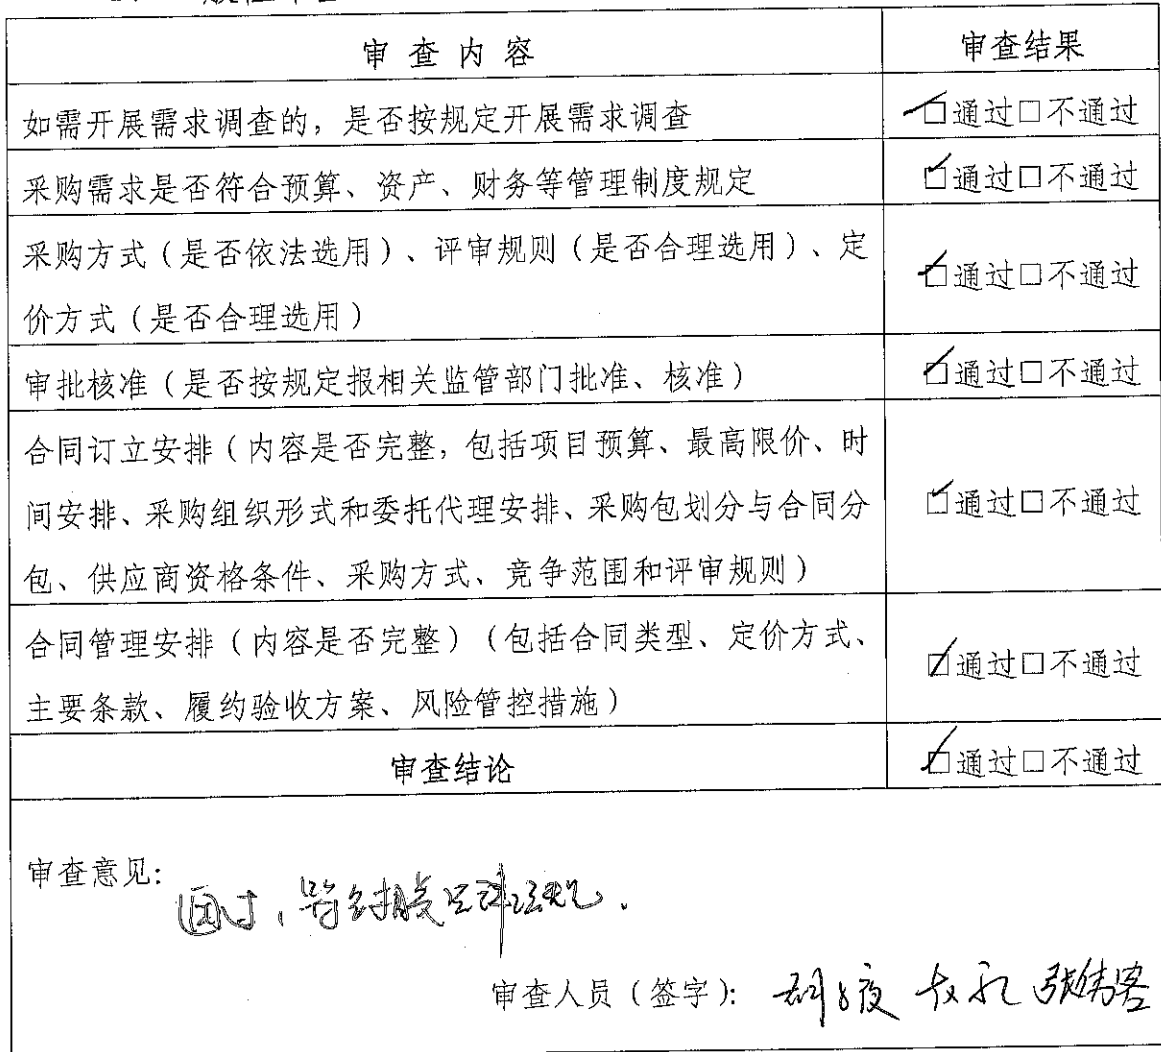 审查内容
审查结果
如需开展需求调查的，是否按规定开展需求调查
☑通过□不通过
采购需求是否符合预算、资产、财务等管理制度规定
☑通过□不通过
采购方式（是否依法选用）、评审规则（是否合理选用）、定
价方式（是否合理选用）
☑通过□不通过
审批核准（是否按规定报相关监管部门批准、核准）
☑通过□不通过
合同订立安排（内容是否完整，包括项目预算、最高限价、时
间安排、采购组织形式和委托代理安排、采购包划分与合同分
包、供应商资格条件、采购方式、竞争范围和评审规则）
☑通过□不通过
合同管理安排（内容是否完整）（包括合同类型、定价方式、
主要条款、履约验收方案、风险管控措施）
☑通过□不通过
审查结论
☑通过□不通过
审查意见：
通过，
审查人员（签字）：